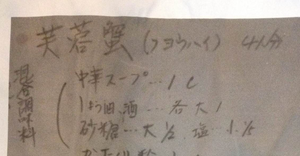 芙蓉蟹(フヨウハイ) 4人分
混合調味料
中華スープ…1C
しょう油、酒…各大1
砂糖…大½、塩…小⅓